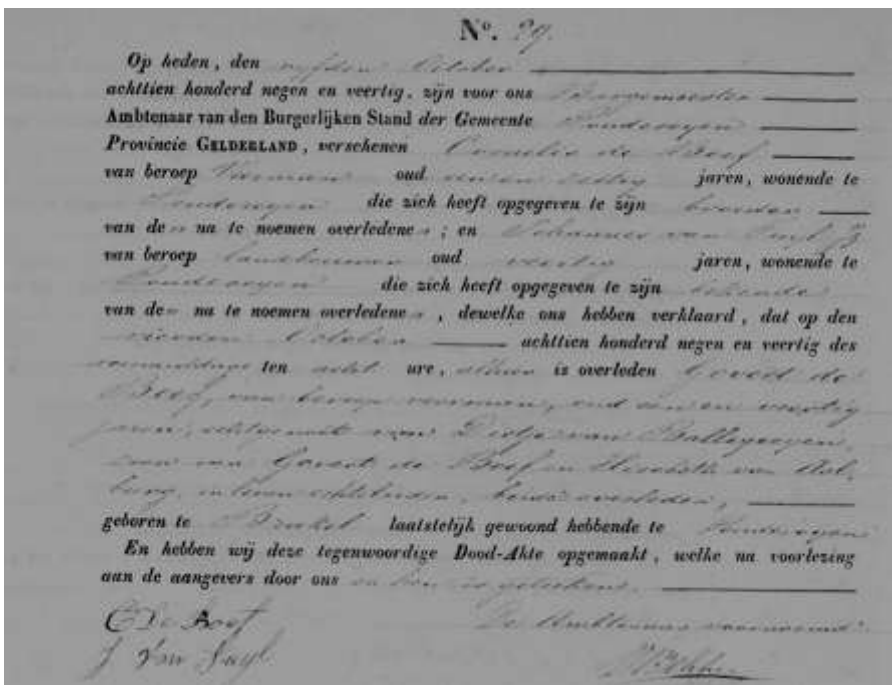 No. 29.
Op heden, den vyfden October
achttien honderd negen en veertig, zijn voor ons Burgemeester
Ambtenaar van den Burgerlijken Stand der Gemeente
Provincie GELDERLAND, verschenen Cornelis de Boef
van beroep Voerman oud jaren, wonende te
die zich heeft opgegeven te zijn broeder
van de na te noemen overledene; en Johannes van Tuyl
van beroep landbouwer oud veertig jaren, wonende te
die zich heeft opgegeven te zijn bekende
van de na te noemen overledene, dewelke ons hebben verklaard, dat op den
vierden October achttien honderd negen en veertig des
voormiddags ten acht ure, alhier is overleden Govert de
Boef, van beroep voerman, oud een en veertig
jaren, echtgenoot van Dirkje van Ballegooyen,
zoon van Govert de Boef en van Aal-
burg, in leven echtelieden, beide overleden,
geboren te Brakel laatstelijk gewoond hebbende te
En hebben wij deze tegenwoordige Dood-Akte opgemaakt, welke na voorlezing
aan de aangevers door ons en hen is geteekend.
C De Boef De Ambtenaar voornoemd
J Van Tuyl